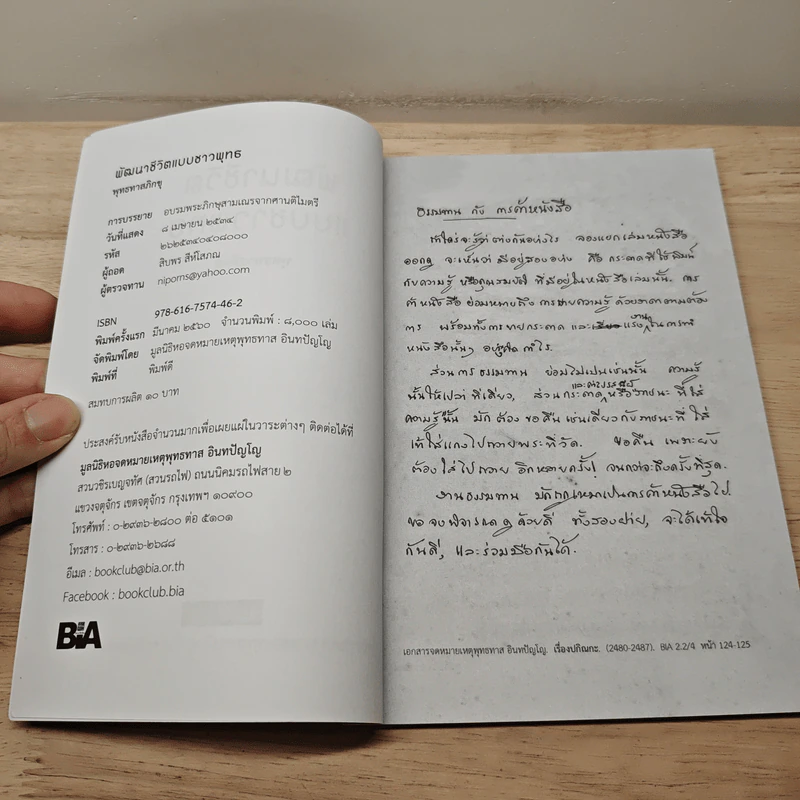 พัฒนาชีวิตแบบชาวพุทธ
พุทธทาสภิกขุ
การบรรยาย อบรมพระภิกษุสามเณรจากศานติไมตรี
วันที่แสดง ๘ เมษายน ๒๕๓๔
รหัส ๒๖๒๕๓๔๐๔๐๘๐๐๐
ผู้ถอด สิบพร สีห์โสภณ
ผู้ตรวจทาน niporns@yahoo.com
ISBN 978-616-7574-46-2
พิมพ์ครั้งแรก มีนาคม ๒๕๖๐ จำนวนพิมพ์ : ๘,๐๐๐ เล่ม
จัดพิมพ์โดย มูลนิธิหอจดหมายเหตุพุทธทาส อินทปัญโญ
พิมพ์ที่ พิมพ์ดี
สมทบการผลิต ๑๐ บาท
ประสงค์รับหนังสือจำนวนมากเพื่อเผยแผ่ในวาระต่างๆ ติดต่อได้ที่
มูลนิธิหอจดหมายเหตุพุทธทาส อินทปัญโญ
สวนวชิรเบญจทัศ (สวนรถไฟ) ถนนนิคมรถไฟสาย ๒
แขวงจตุจักร เขตจตุจักร กรุงเทพฯ ๑๐๙๐๐
โทรศัพท์ : ๐-๒๙๓๖-๒๘๐๐ ต่อ ๕๑๐๑
โทรสาร : ๐-๒๙๓๖-๒๖๘๘
อีเมล : bookclub@bia.or.th
Facebook : bookclub.bia
BIA
ธรรมทาน กับ การค้าหนังสือ
ถ้าใครจะรู้ว่าต่างกันอย่างไร ลองแยกเล่มหนังสือ
ออกดู จะเห็นว่า มีอยู่สองอย่าง คือ กระดาษที่ใช้พิมพ์
กับความรู้ หรือคุณสมบัติ ที่มีอยู่ในหนังสือเล่มนั้น. การ
ค้าหนังสือ ย่อมหมายถึงการขายความรู้ ด้วยราคาตามต้อง
การ พร้อมทั้งการขายกระดาษ และแรงงานในการทำ
หนังสือนั้นๆ อยู่ในกำไร.
ส่วนการธรรมทาน ย่อมไม่เป็นเช่นนั้น ความรู้
นั้นให้เปล่า ทีเดียว, ส่วนกระดาษและค่าแรงหรือภาชนะ ที่ใส่
ความรู้นั้น มักต้องขอคืน เช่นเดียวกับภาชนะที่ใส่
เข้าใส่แกงไปถวายพระที่วัด. ขอคืน เพราะยัง
ต้องใส่ไปถวาย อีกหลายครั้ง! จนกว่าจะถึงครั้งที่สุด.
งานธรรมทาน มักถูกเหมาเป็นการค้าหนังสือไป.
ขอจงพิจารณาดูด้วยดี ทั้งสองฝ่าย, จะได้เข้าใจ
กันดี, และร่วมมือกันได้.
เอกสารจดหมายเหตุพุทธทาส อินทปัญโญ. เรื่องปกิณกะ. (2480-2487). BIA 2.2/4 หน้า 124-125